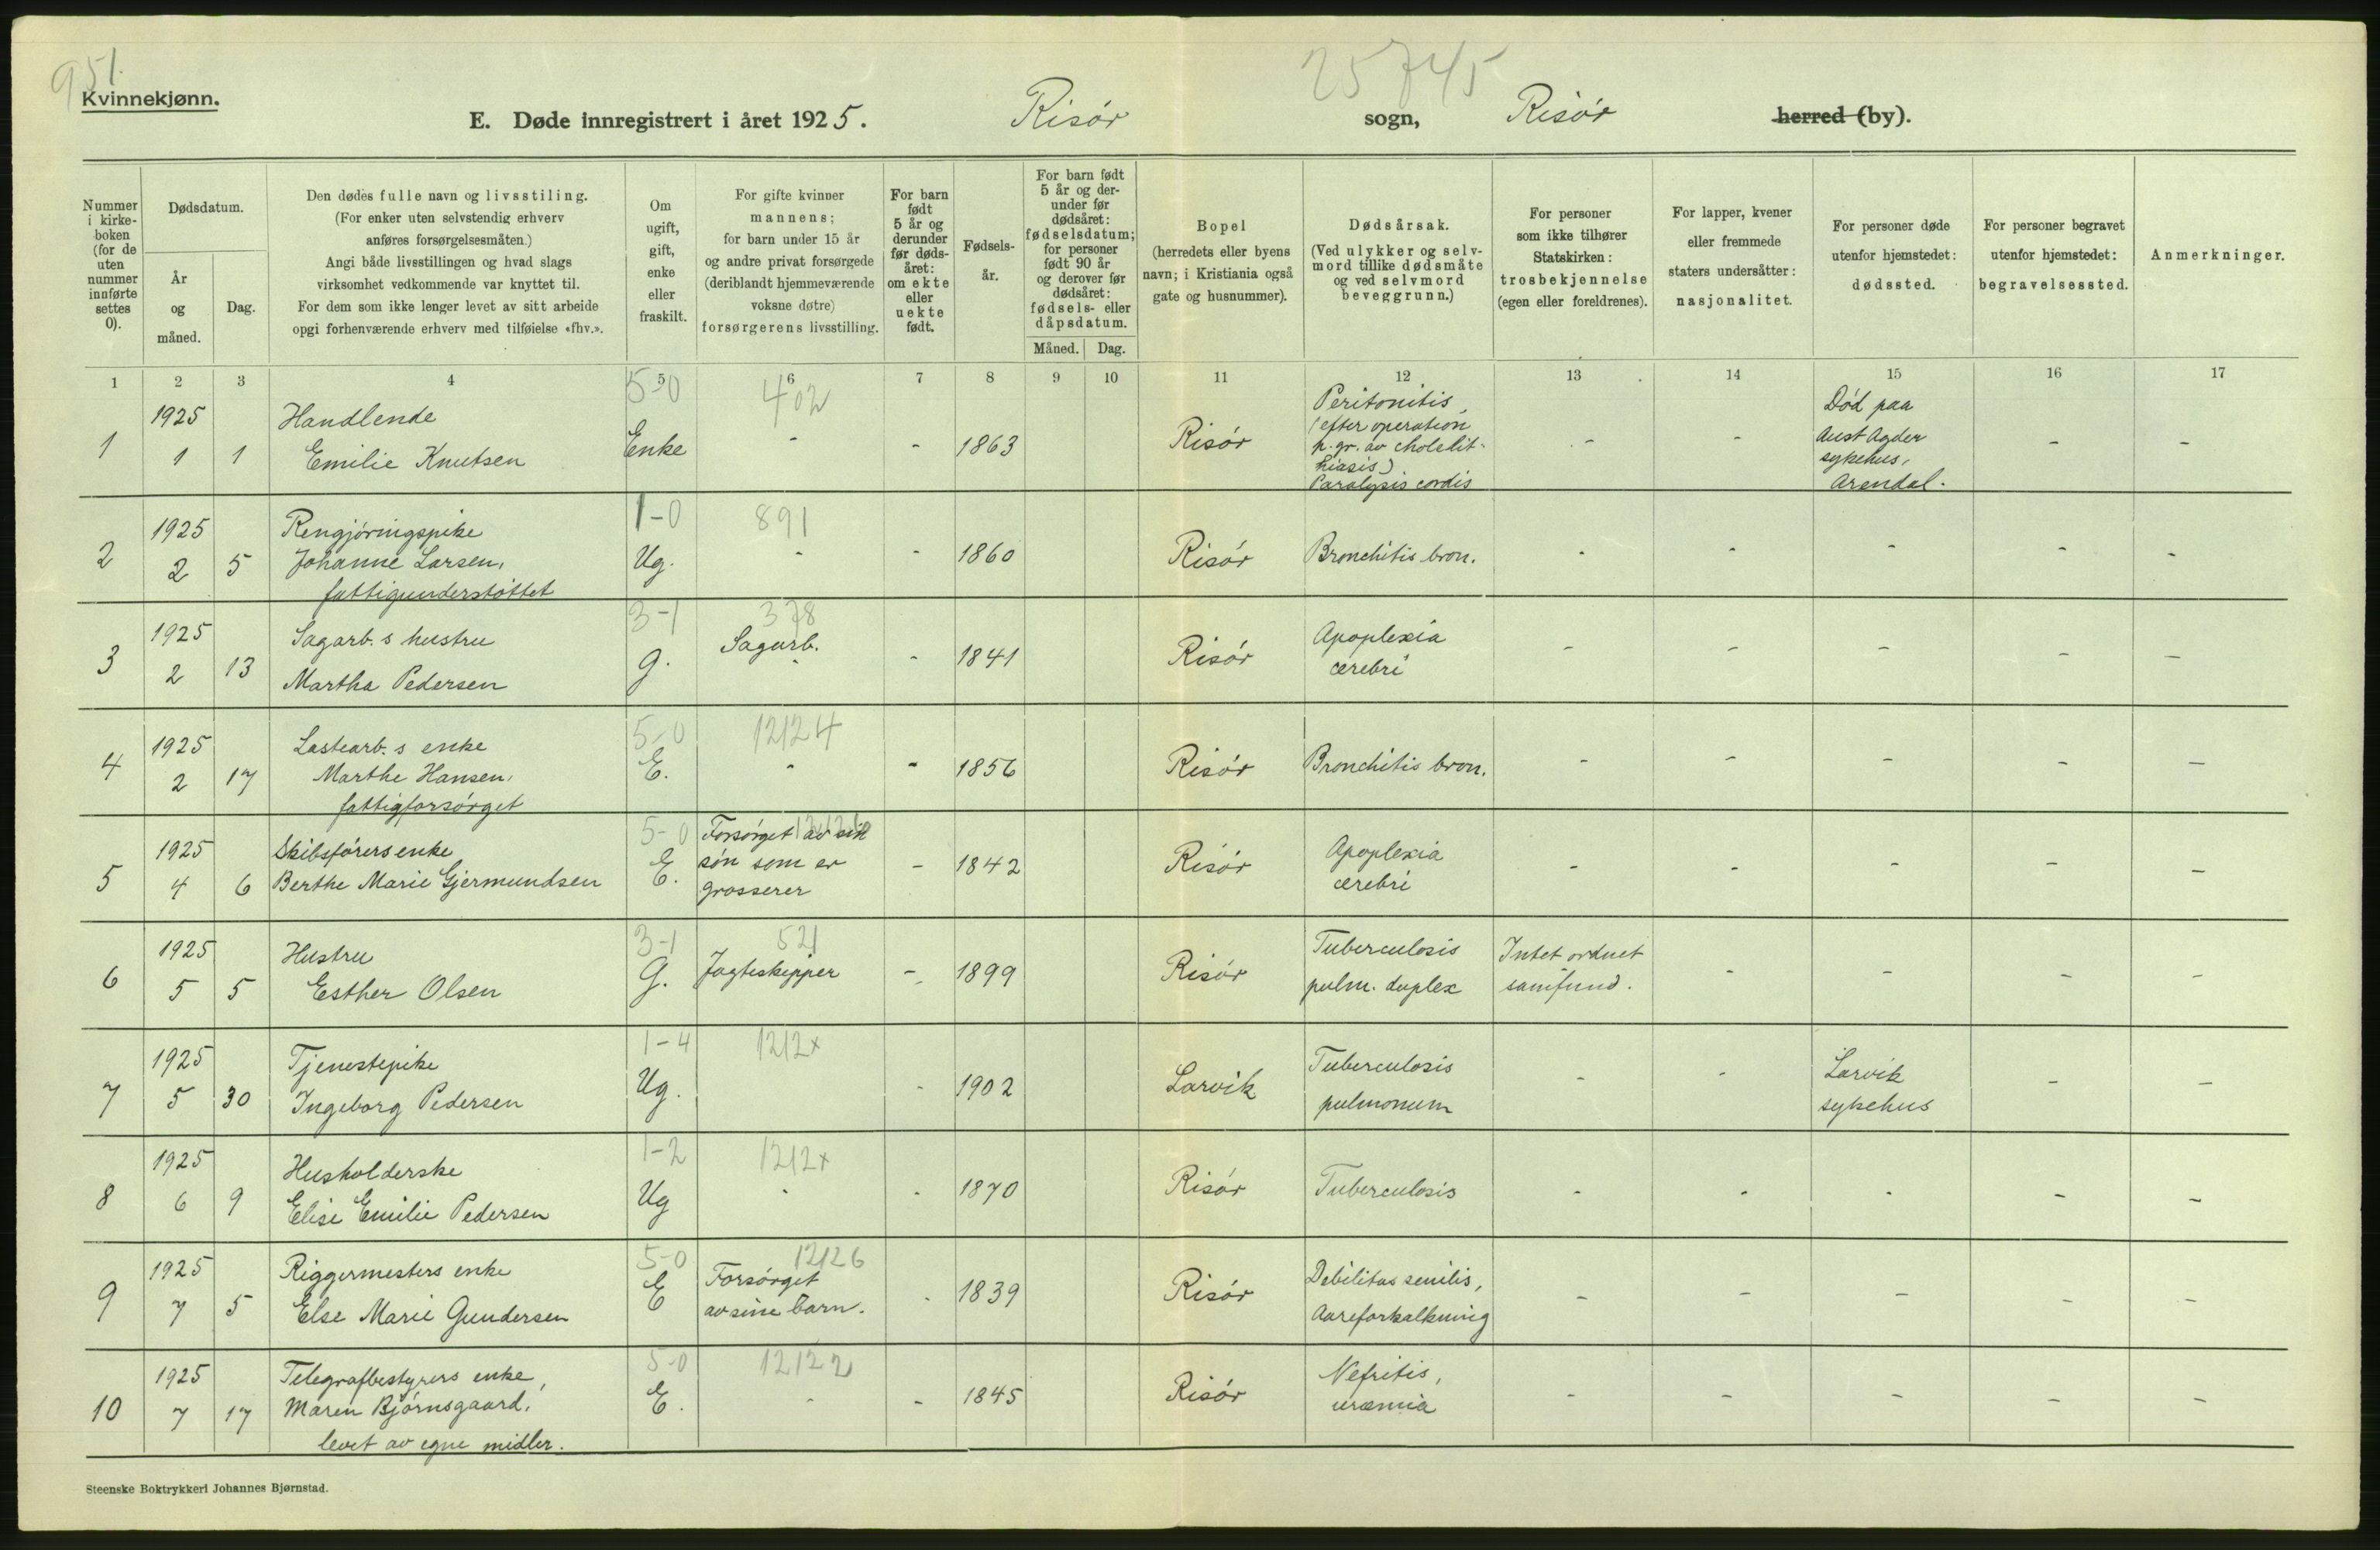 951.
Kvinnekjønn.
25745
E. Døde innregistrert i året 1925. Risør sogn, Risør herred (by).
Nummer i kirke-boken (for de uten nummer innførte settes 0).
Dødsdatum.
År og måned.
Dag.
Den dødes fulle navn og livsstiling.
(For enker uten selvstendig erhverv
anføres forsørgelsesmåten.)
Angi både livsstillingen og hvad slags
virksomhet vedkommende var knyttet til.
For dem som ikke lenger levet av sitt arbeide
opgi forhenværende erhverv med tilføielse «fhv.».
Om ugift, gift, enke eller fraskilt.
For gifte kvinner
mannens;
for barn under 15 år
og andre privat forsørgede
(deriblandt hjemmeværende
voksne døtre)
forsørgerens livsstilling.
For barn født 5 år og derunder før døds-året: om ekte eller uekte født.
Fødsels-år.
For barn født 5 år og der-under før dødsåret: fødselsdatum; for personer født 90 år og derover før dødsåret: fødsels- eller dåpsdatum.
Måned. Dag.
Bopel
(herredets eller byens
navn; i Kristiania også
gate og husnummer).
Dødsårsak.
(Ved ulykker og selv-
mord tillike dødsmåte
og ved selvmord
beveggrunn.)
For personer
som ikke tilhører
Statskirken:
trosbekjennelse
(egen eller foreldrenes).
For lapper, kvener
eller fremmede
staters undersåtter:
nasjonalitet.
For personer døde
utenfor hjemstedet:
dødssted.
For personer begravet
utenfor hjemstedet:
begravelsessted.
Anmerkninger.
1 2 3 4 5 6 7 8 9 10 11 12 13 14 15 16 17
1 1925 1 1 Handlende Emilie Knutsen 5-0 Enke 402 - - 1863 Risør Peritonitis, (efter operation p.gr. av cholelit-hiasis) Paralysis cordis - - Død paa Aust Agder sykehus, Arendal. - -
2 1925 2 5 Rengjøringspike Johanne Larsen, fattigunderstøttet 1-0 Ug. 891 - - 1860 Risør Bronchitis kron. - - - - -
3 1925 2 13 Sagarb.s hustru Martha Pedersen 3-1 g. 378 Sagarb. - - 1841 Risør Apoplexia cerebri - - - - -
4 1925 2 17 Lastearb.s enke Marthe Hansen, fattigforsørget 5-0 E. 12124 - - 1856 Risør Bronchitis kron. - - - - -
5 1925 4 6 Skibsførers enke Berthe Marie Gjermundsen 5-0 E. Forsørget av sin søn som er grosserer - 1842 Risør Apoplexia cerebri - - - - -
6 1925 5 5 Hustru Esther Olsen 3-1 G. 521 Jagteskipper - 1899 Risør Tuberculosis pulm. duplex Intet ordnet samfund. - - - -
7 1925 5 30 Tjenestepike Ingeborg Pedersen 1-4 Ug. 1212x - 1902 Larvik Tuberculosis pulmonum - - Larvik sykehus - -
8 1925 6 9 Husholderske Elise Emilie Pedersen 1-2 Ug 1212x - - 1870 Risør Tuberculosis - - - - -
9 1925 7 5 Riggermesters enke Else Marie Gundersen 5-0 E 12126 Forsørget av sine barn. - 1839 Risør Debilitas senilis, Aareforkalkning - - - - -
10 1925 7 17 Telegrafbestyrers enke, Maren Bjørnsgaard, levet av egne midler. 5-0 E. 12122 - - 1845 Risør Nefritis, uræmia - - - - -
Steenske Boktrykkeri Johannes Bjørnstad.